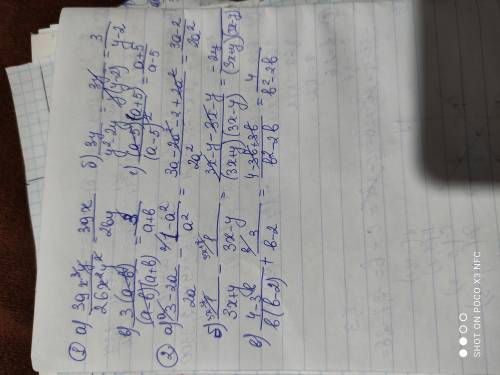 ① а) 39x³y / 26x²y² = 39x / 26y б) 3y / y²-2y = 3y / y(y-2) = 3 / y-2
в) 3(a-b) / (a-b)(a+b) = 3 / a+b г) (a-5)(a+5) / (a-5)² = a+5 / a-5
② а) 3-2a / 2a - 1-a² / a² = 3a-2a²-2+2a² / 2a² = 3a-2 / 2a²
б) 1 / 3x+y - 1 / 3x-y = 3x-y-3x-y / (3x+y)(3x-y) = -2y / (3x+y)(3x-y)
в) 4-3b / b(b-2) + 3 / b-2 = 4-3b+3b / b²-2b = 4 / b²-2b
SHOT ON POCO X3 NFC